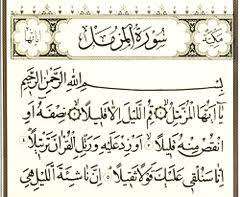 سورة المزمل
مكية
بسم الله الرحمن الرحيم
يا أيها المزمل قم الليل إلا قليلا نصفه أو
انقص منه قليلا أو زد عليه ورتل القرآن ترتيلا
إنا سنلقي عليك قولا ثقيلا إن ناشئة الليل هي